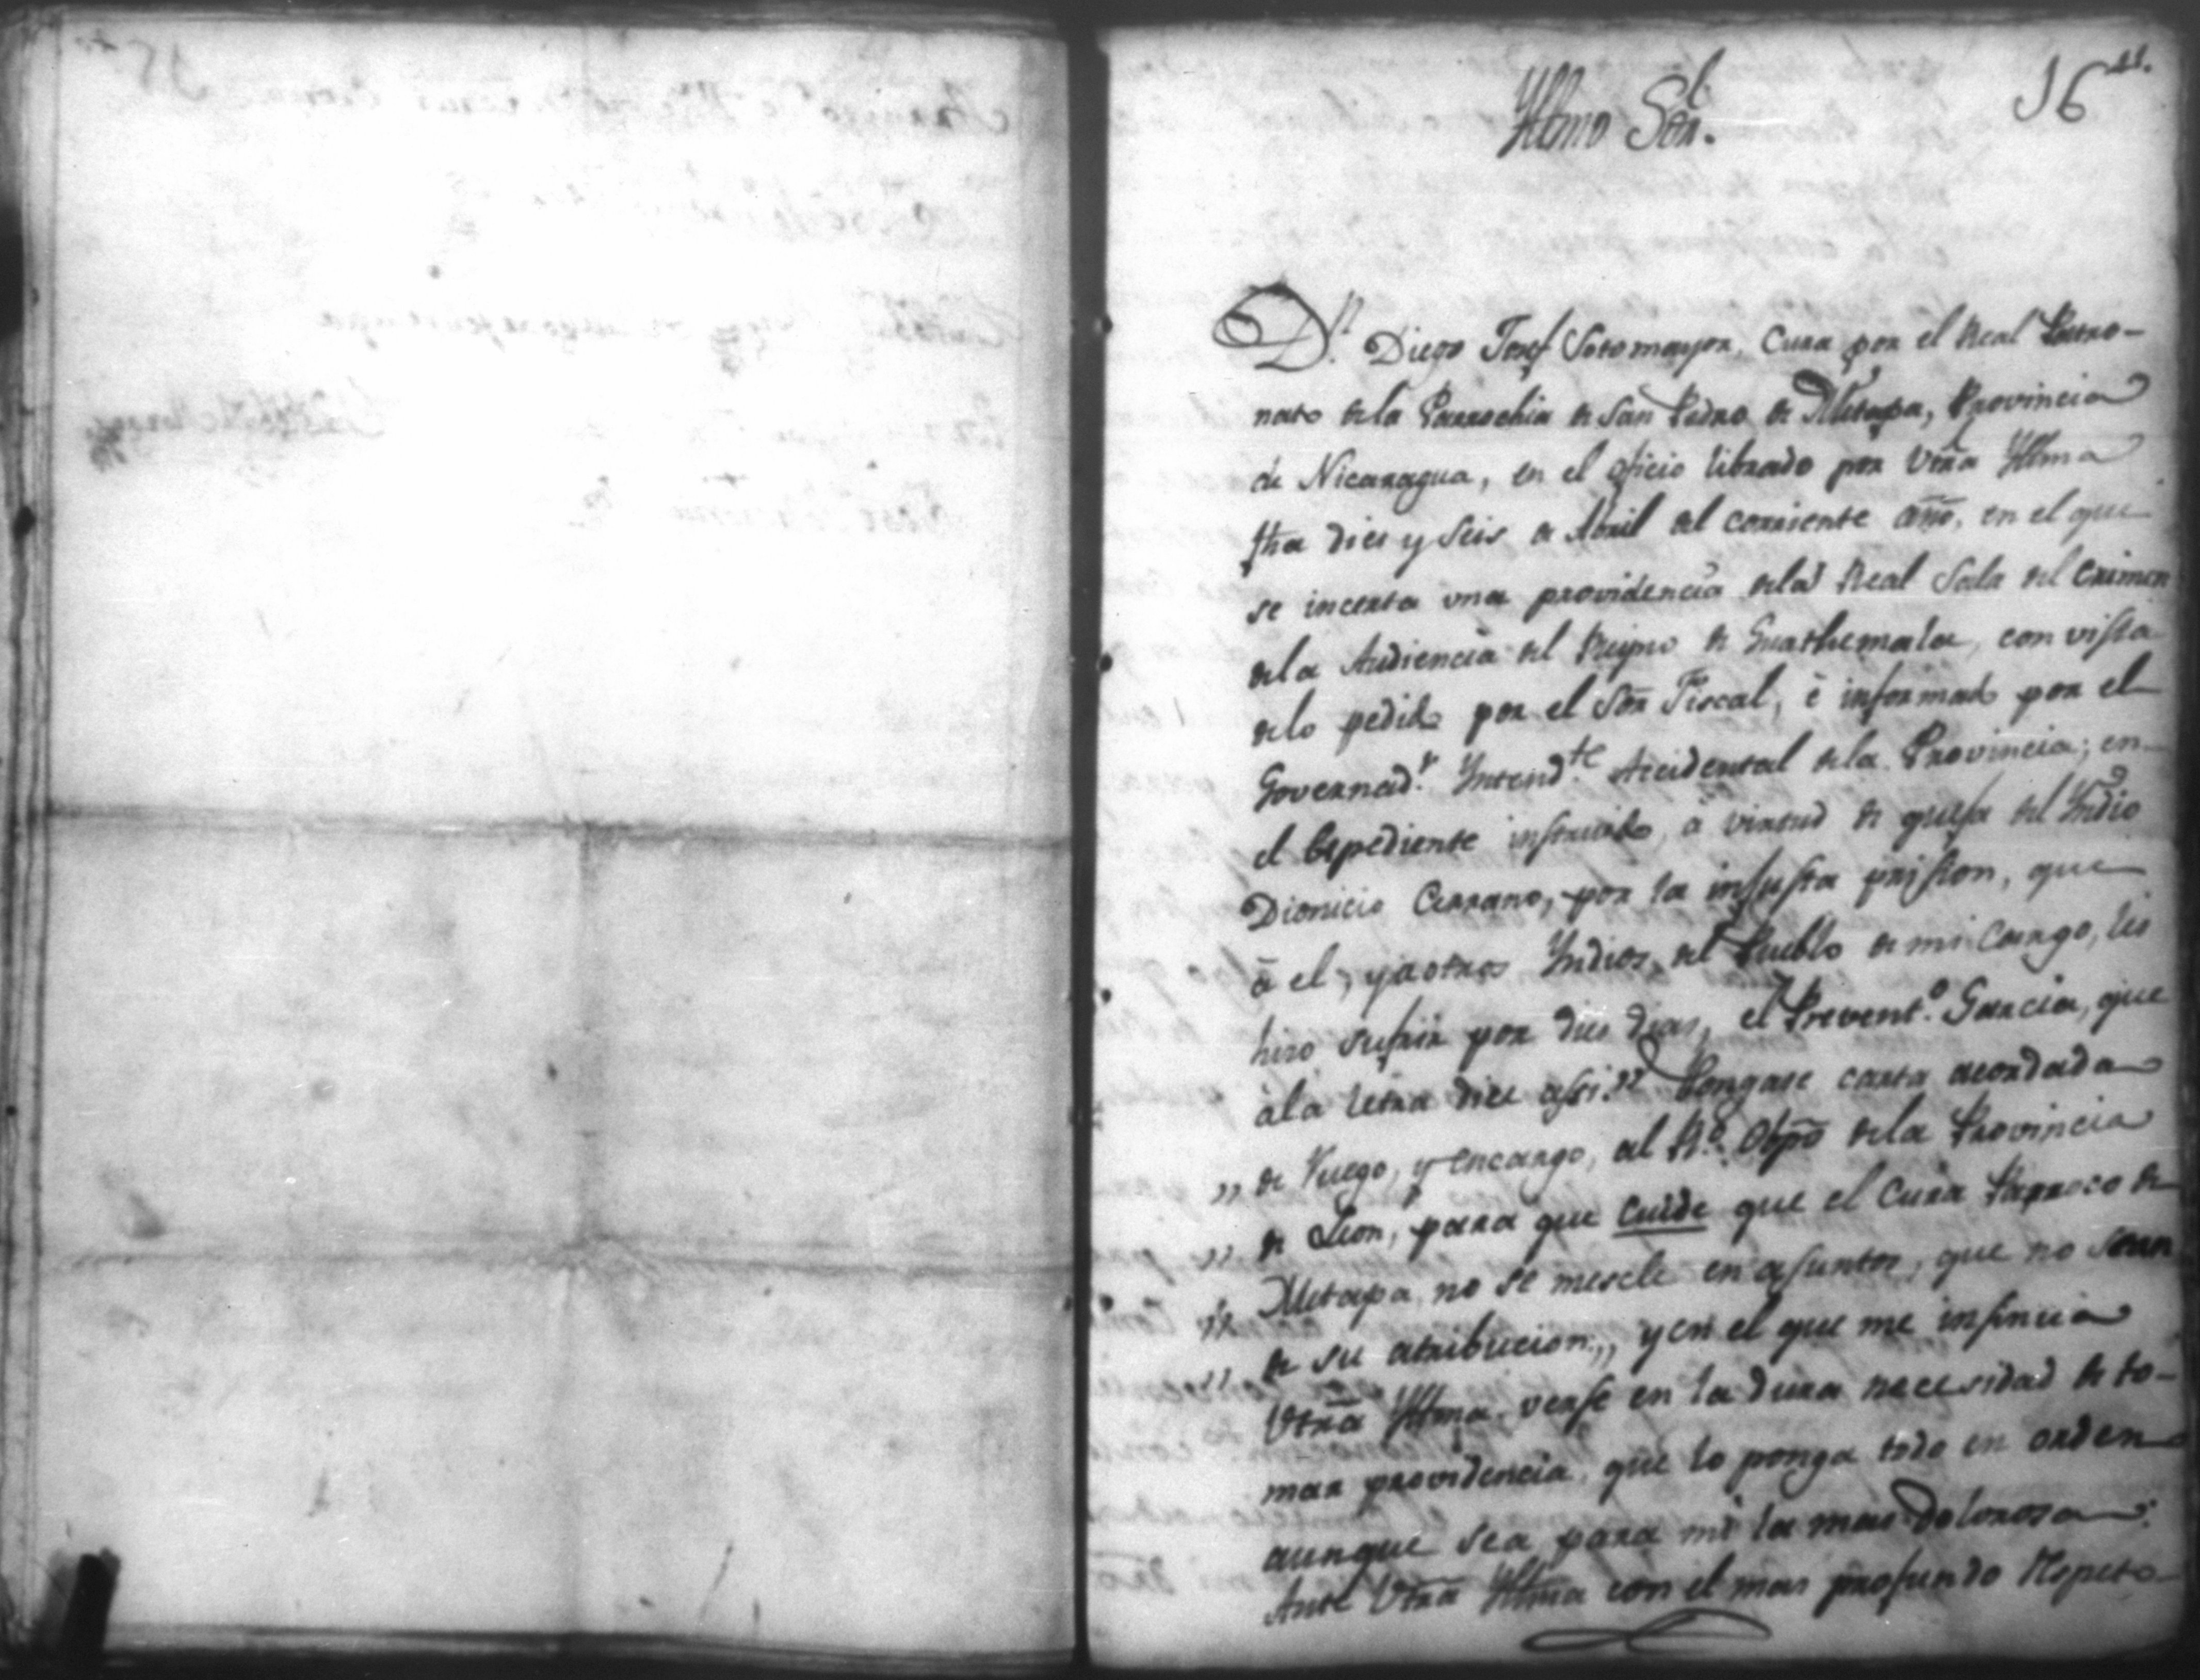 16
Yllmo Señr.
Dn. Diego Josef Sotomayor, Cura por el Real Patro-
nato dela Parrochia de San Pedro de Metapa, Provincia
de Nicaragua, en el oficio librado por Vtra Yllma
fha dies y seis de Abril del corriente año, en el que
se incerta una providencia dela Real Sala del Crimen
dela Audiencia del Reyno de Guathemala, con vista
delo pedido por el Sor Fiscal, é informado por el
Governadr. Yntendte. Accidental dela Provincia; en
el Expediente instruido, á virtud de quefa del Yndio
Dionicio Cerrano, por la injusta prision, que
á el, y aotros Yndios del Pueblo de mi Cargo, les
hiso sufrir por dies dias, el Prevento. Garcia, que
ála letra dice assi: " Pongase carta acordada
" de Ruego, y encargo, al Ro. Obpo dela Provincia
" de Leon, para que cuide que el Cura Parroco de
" Metapa no se mescle en asuntos, que no sean
" de su atribucion,, y en el que me insinua
Vtra Yllma. verse en la dura necesidad de to-
mar providencia, que lo ponga todo en orden
aunque sea para mi la mas dolorosa:
Ante Vtra Yllma con el mas profundo Respeto